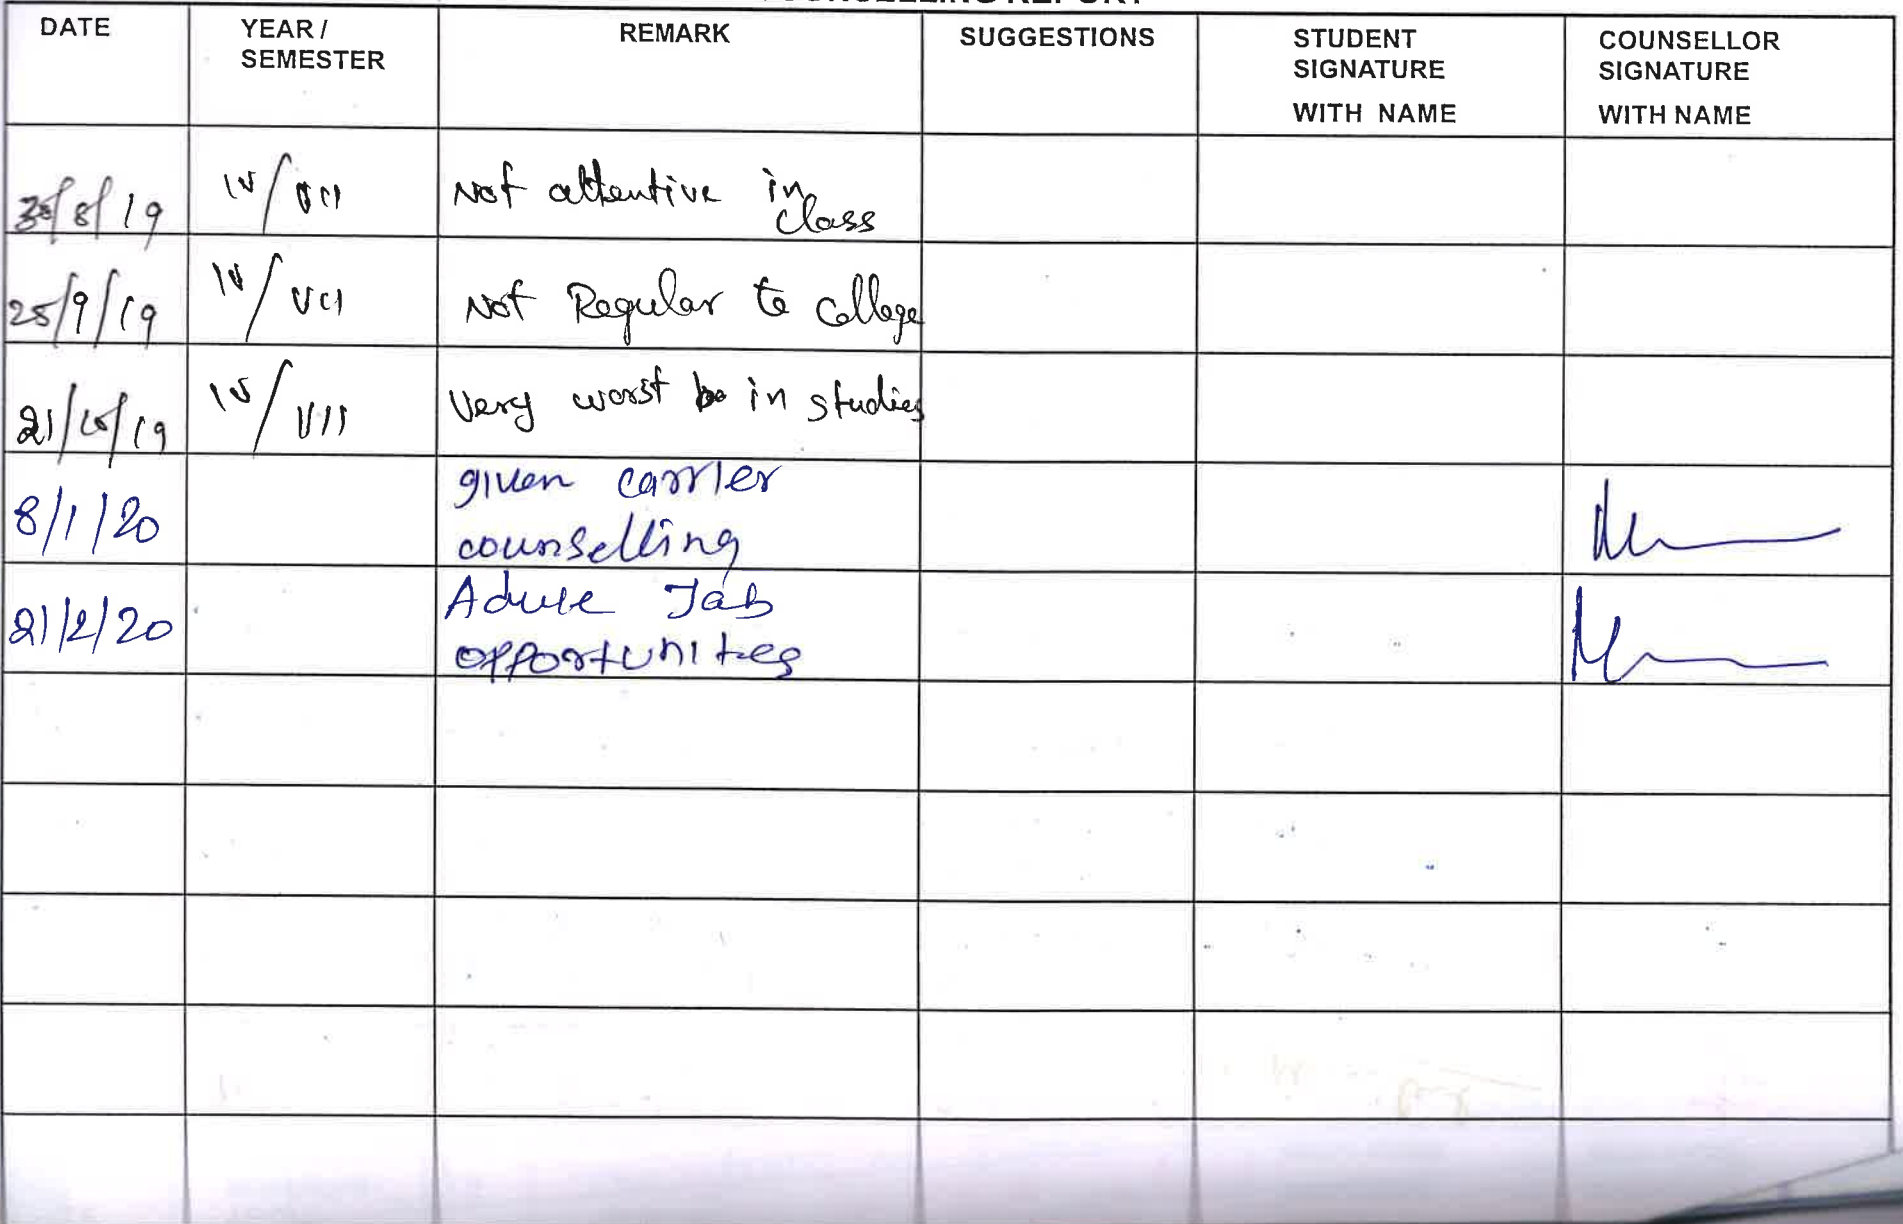 COUNSELLING REPORT
DATE YEAR / SEMESTER REMARK SUGGESTIONS STUDENT SIGNATURE WITH NAME COUNSELLOR SIGNATURE WITH NAME
/8/19 IV/VII Not attentive in class
25/9/19 IV/VII Not Regular to college
21/10/19 IV/VII Very worst in studies
8/1/20 given carrier
counselling
21/2/20 Advise Job
opportunities